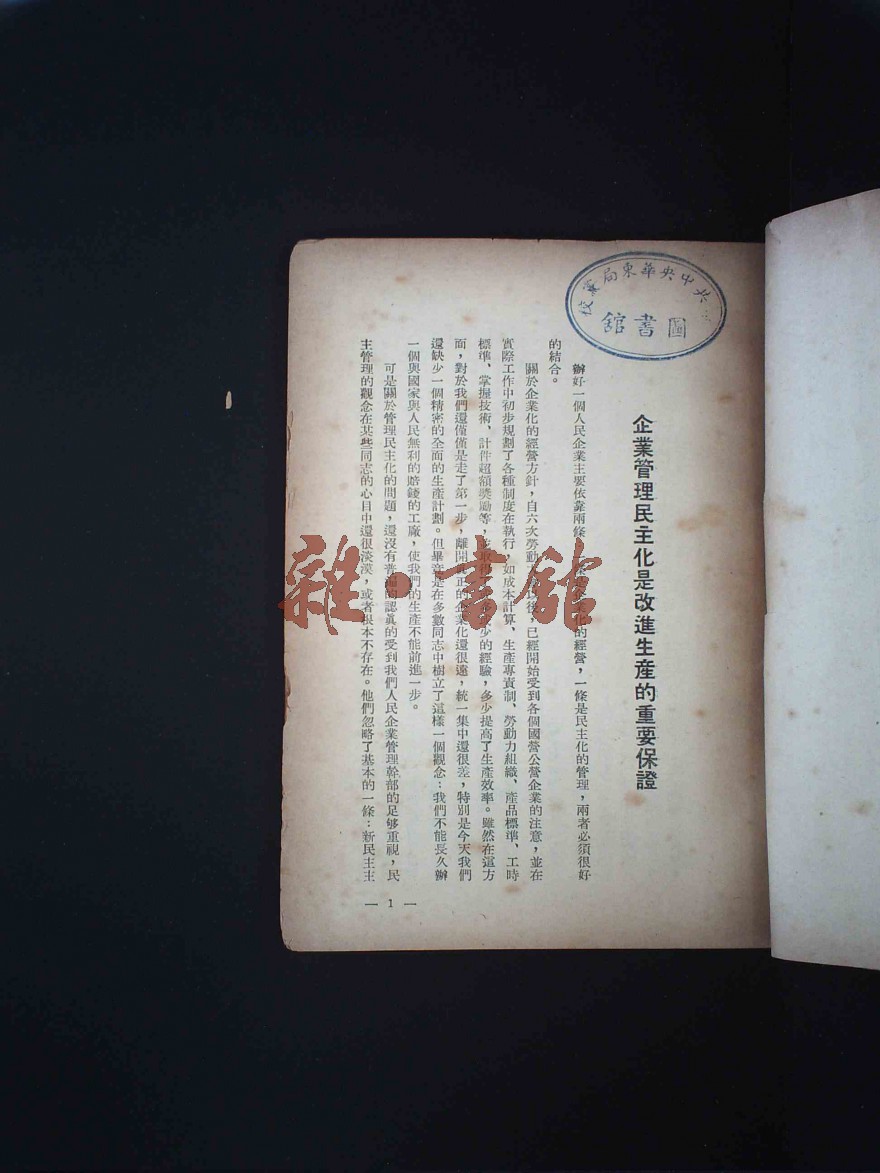 中共中央華東局黨校
圖書館
企業管理民主化是改進生產的重要保證
辦好一個人民企業主要依靠兩條 企業化的經營，一條是民主化的管理，兩者必須很好
的結合。
關於企業化的經營方針，自六次勞動 以後，已經開始受到各個國營公營企業的注意，並在
實際工作中初步規劃了各種制度在執行，如成本計算、生產專責制、勞動力組織、產品標準、工時
標準、掌握技術、計件超額獎勵等， 取得了 少的經驗，多少提高了生產效率。雖然在這方
面，對於我們還僅僅是走了第一步，離開 正的企業化還很遠，統一集中還很差，特別是今天我們
還缺少一個精密的全面的生產計劃。但畢竟是在多數同志中樹立了這樣一個觀念：我們不能長久辦
一個與國家與人民無利的賠錢的工廠，使我們的生產不能前進一步。
可是關於管理民主化的問題，還沒有普遍的認眞的受到我們人民企業管理幹部的足够重視，民
主管理的觀念在某些同志的心目中還很淡漠，或者根本不存在。他們忽略了基本的一條：新民主主
— 1 —
雜·書館